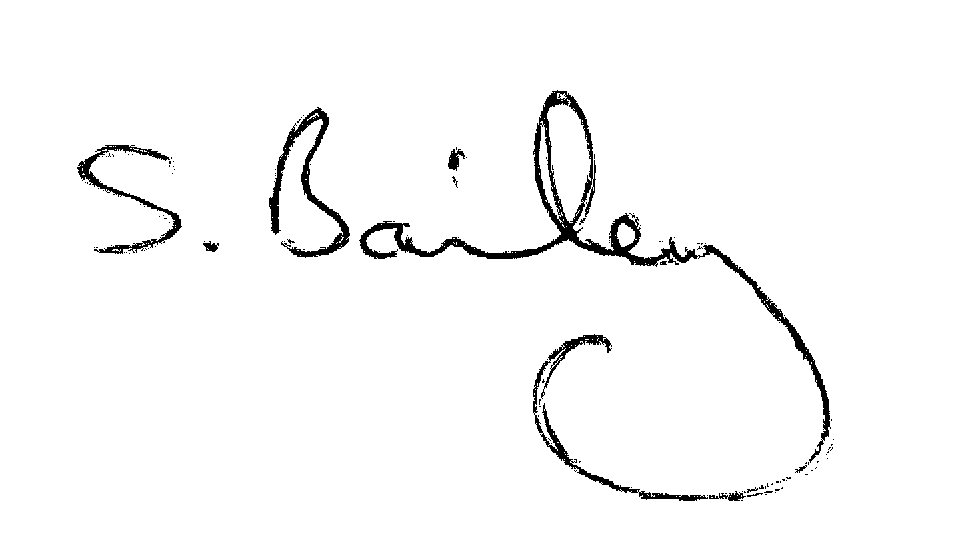 S. Bailey